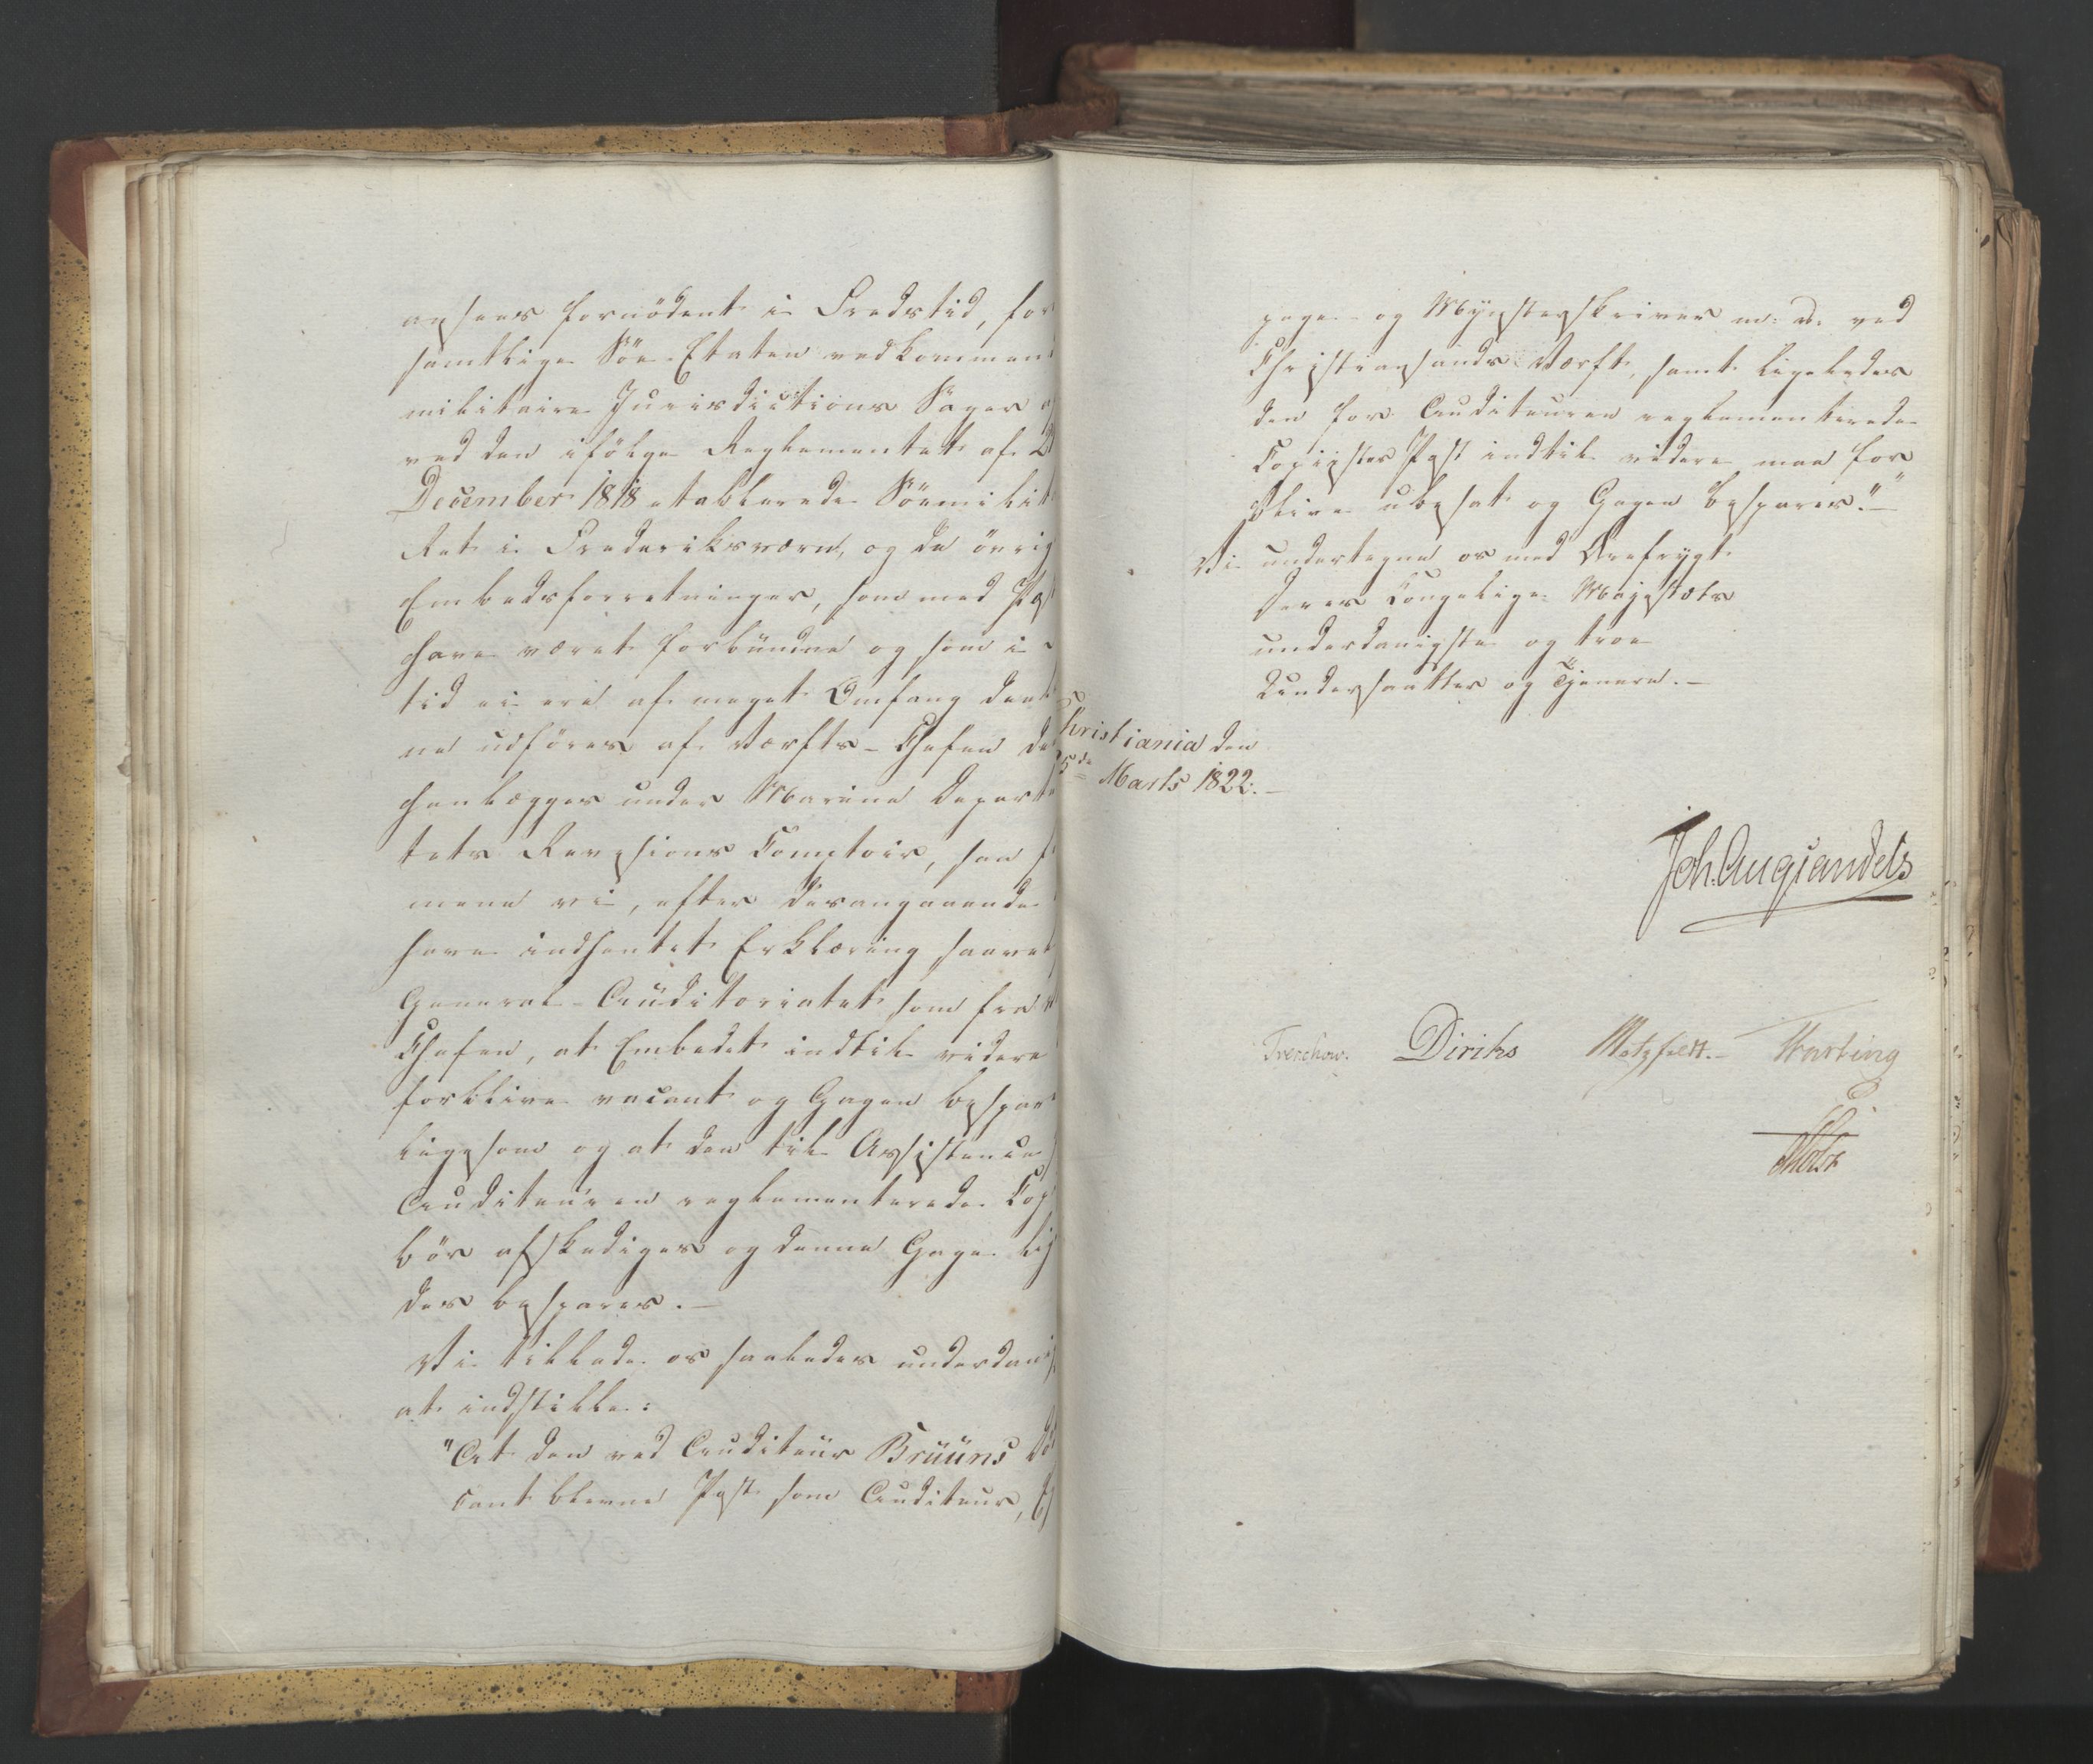 ansees fornödent i Fredstid, for
samtlige Söe-Etaten vedkommen
militaire Jurisdictions Sager
ved den ifölge Reglementet af 2
December 1818 etablerede Söemilit
Ret i Frederiksværn, og de övrig
Embedsforretninger, som med
have været forbundne og som i
tid ei ere af meget Omfang
ne udföres af Værfts-Chefen
henlægges under Marine Depart
tets Revisions Comptoir, saa
mene vi, efter desangaaende
have indhentet Erklæring saavel
General-Auditoriatet som fra
Chefen, at Embedet indtil videre
forblive vacant og Gagen bespar
ligesom og at den til Assistence
Auditeuren reglementerede Cop
bör afskediges og denne Gage lig
des bespares.-
Vi tillade os saaledes underdan
at indstille:
"At den ved Auditeur Brüüns
cant blevne Post som Auditeur,
page- og Mynsterskriver m: v: ved
Christiansands Værft, samt ligeledes
den for Auditeuren reglementerede
Copiistes Post indtil videre maa for
blive ubesat og Gagen bespares."-
Vi undertegne os med Ærefrygt
Deres Kongelige Majestæts
underdanigste og troe
Undersaatter og Tjenere.-
Christiania den
5de Marts 1822.-
Joh. Aug Sandels
Treschow. Diriks Motzfeldt.- Fasting
Holst